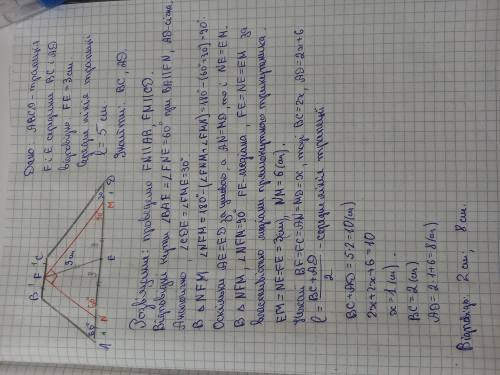 Дано: ABCD - трапеція
F i E середини BC i AD
відповідно FE = 3 см
Середня лінія трапеції
l = 5 см
Знайти: BC, AD.
B F C
3 см
60° 60 30 30
A 1 N 3 E 3 M 1 D
Розв'язання: проведемо FN || AB, FM || CD.
Відповідні кути ∠BAE = ∠FNE = 60° при BA || FN, AD-січна.
Аналогічно ∠CDE = ∠FME = 30°
В Δ NFM ∠NFM = 180° - (∠FNM + ∠FMN) = 180° - (60° + 30°) = 90°.
Оскільки AE = ED за умовою, а AN = MD, то і NE = EM.
В Δ NFM, ∠NFM = 90° FE - медіана, FE = NE = EM за
властивістю медіани прямокутного трикутника.
EM = NE = FE = 3 (см), NM = 6 (см).
Нехай BF = FC = AN = MD = x, тоді BC = 2x, AD = 2x + 6
l = BC + AD / 2 - середня лінія трапеції
BC + AD = 5·2 = 10 (см)
2x + 2x + 6 = 10
x = 1 (см).
BC = 2 (см)
AD = 2·1 + 6 = 8 (см)
Відповідь: 2 см, 8 см.